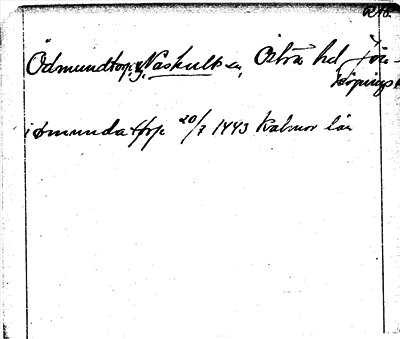 Ödmundtorp, Näshults sn, Östra hd Jön-
köpings
i ømundathorp 20/7 1443 Kalmar län